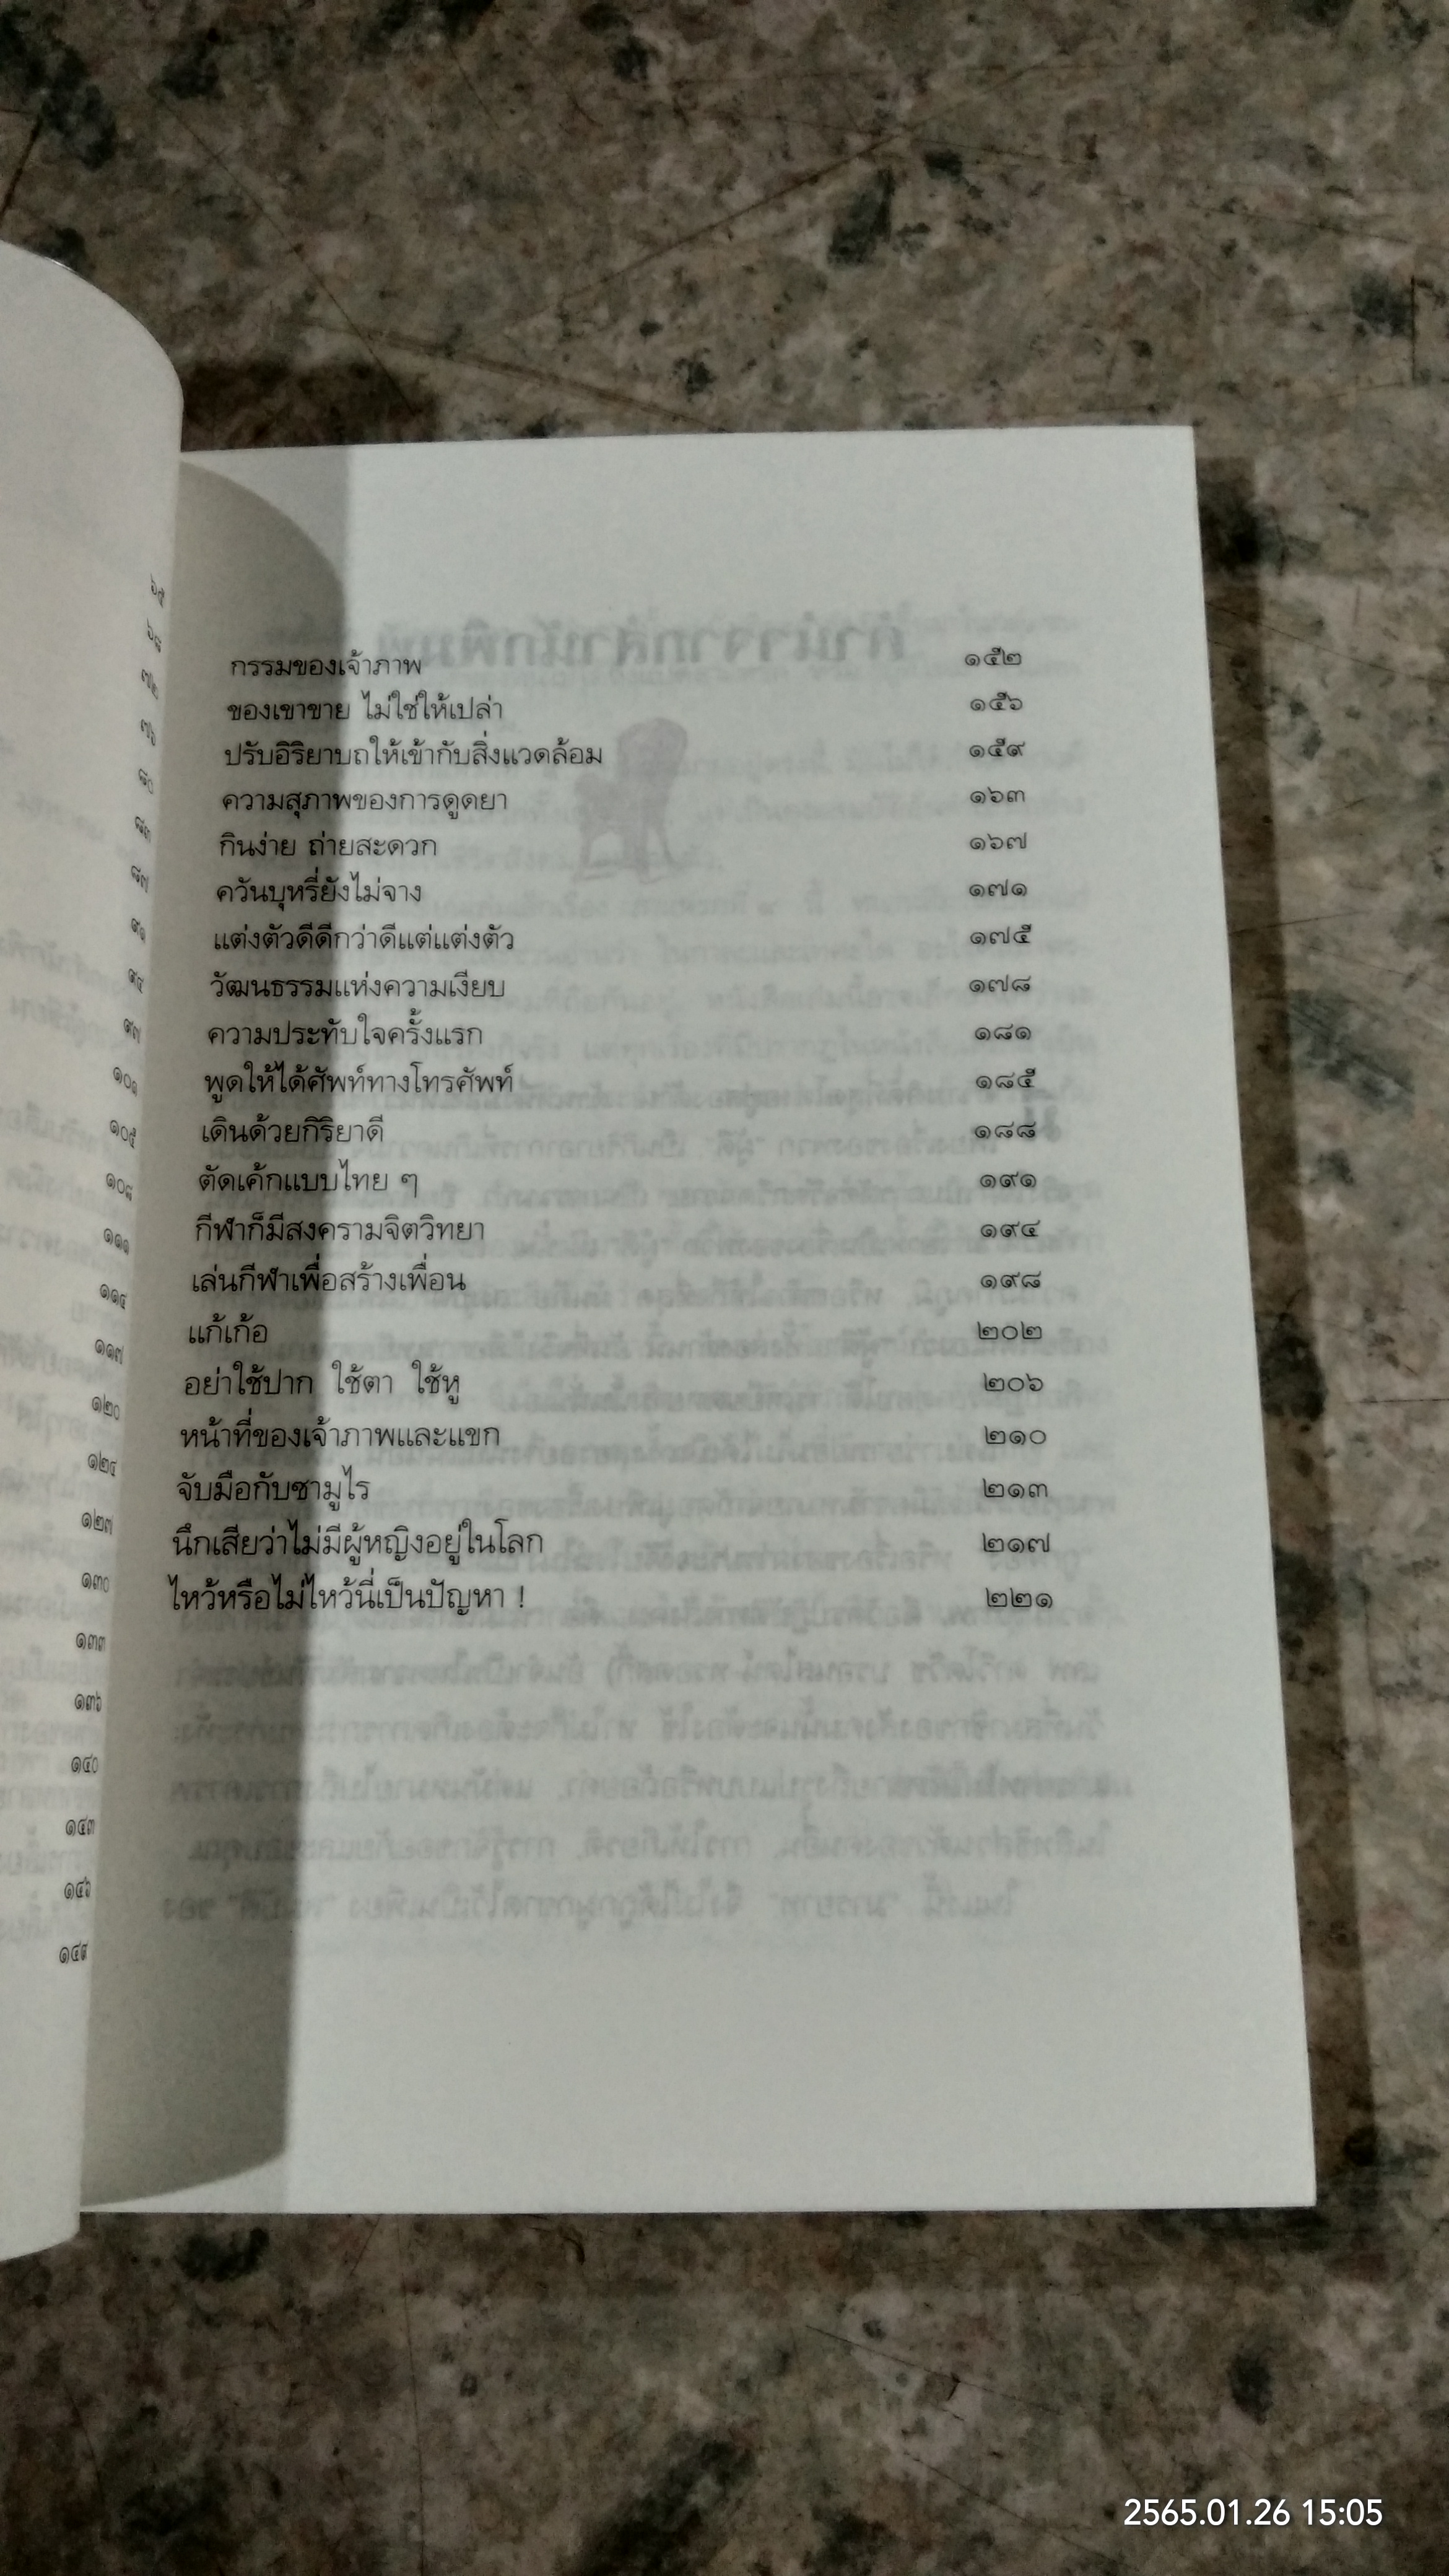 ๖๕
๖๘
๗๒
๗๖
๘๐
๘๓
๘๗
๙๑
๙๔
๙๗
๑๐๑
๑๐๕
๑๐๘
๑๑๑
๑๑๔
๑๑๗
๑๒๐
๑๒๔
๑๒๗
๑๓๐
๑๓๓
๑๓๖
๑๔๐
๑๔๓
๑๔๖
๑๔๙
กรรมของเจ้าภาพ ๑๕๒
ของเขาขาย ไม่ใช่ให้เปล่า ๑๕๖
ปรับอิริยาบถให้เข้ากับสิ่งแวดล้อม ๑๕๙
ความสุภาพของการดูดยา ๑๖๓
กินง่าย ถ่ายสะดวก ๑๖๗
ควันบุหรี่ยังไม่จาง ๑๗๑
แต่งตัวดีดีกว่าดีแต่แต่งตัว ๑๗๕
วัฒนธรรมแห่งความเงียบ ๑๗๘
ความประทับใจครั้งแรก ๑๘๑
พูดให้ได้ศัพท์ทางโทรศัพท์ ๑๘๕
เดินด้วยกิริยาดี ๑๘๘
ตัดเค้กแบบไทย ๆ ๑๙๑
กีฬาก็มีสงครามจิตวิทยา ๑๙๔
เล่นกีฬาเพื่อสร้างเพื่อน ๑๙๘
แก้เก้อ ๒๐๒
อย่าใช้ปาก ใช้ตา ใช้หู ๒๐๖
หน้าที่ของเจ้าภาพและแขก ๒๑๐
จับมือกับซามูไร ๒๑๓
นึกเสียว่าไม่มีผู้หญิงอยู่ในโลก ๒๑๗
ไหว้หรือไม่ไหว้นี่เป็นปัญหา ! ๒๒๑
2565.01.26 15:05